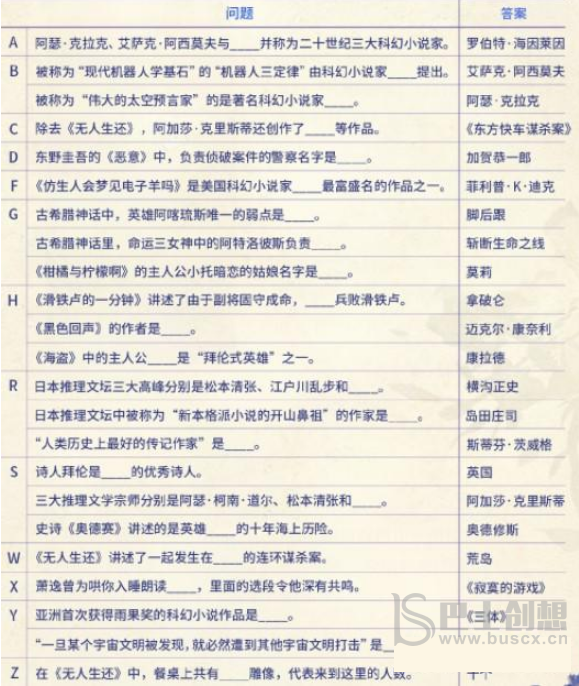 问题 答案
A 阿瑟·克拉克、艾萨克·阿西莫夫与____并称为二十世纪三大科幻小说家。 罗伯特·海因莱因
B 被称为“现代机器人学基石”的“机器人三定律”由科幻小说家____提出。 艾萨克·阿西莫夫
被称为“伟大的太空预言家”的是著名科幻小说家____。 阿瑟·克拉克
C 除去《无人生还》，阿加莎·克里斯蒂还创作了____等作品。 《东方快车谋杀案》
D 东野圭吾的《恶意》中，负责侦破案件的警察名字是____。 加贺恭一郎
F 《仿生人会梦见电子羊吗》是美国科幻小说家____最富盛名的作品之一。 菲利普·K·迪克
G 古希腊神话中，英雄阿喀琉斯唯一的弱点是____。 脚后跟
古希腊神话里，命运三女神中的阿特洛彼斯负责____。 斩断生命之线
《柑橘与柠檬啊》的主人公小托暗恋的姑娘名字是____。 莫莉
H 《滑铁卢的一分钟》讲述了由于副将固守成命，____兵败滑铁卢。 拿破仑
《黑色回声》的作者是____。 迈克尔·康奈利
《海盗》中的主人公____是“拜伦式英雄”之一。 康拉德
R 日本推理文坛三大高峰分别是松本清张、江户川乱步和____。 横沟正史
日本推理文坛中被称为“新本格派小说的开山鼻祖”的作家是____。 岛田庄司
“人类历史上最好的传记作家”是____。 斯蒂芬·茨威格
S 诗人拜伦是____的优秀诗人。 英国
三大推理文学宗师分别是阿瑟·柯南·道尔、松本清张和____。 阿加莎·克里斯蒂
史诗《奥德赛》讲述的是英雄____的十年海上历险。 奥德修斯
W 《无人生还》讲述了一起发生在____的连环谋杀案。 荒岛
X 萧逸曾为哄你入睡朗读____，里面的选段令他深有共鸣。 《寂寞的游戏》
Y 亚洲首次获得雨果奖的科幻小说作品是____。 《三体》
“一旦某个宇宙文明被发现，就必然遭到其他宇宙文明打击”是__
Z 在《无人生还》中，餐桌上共有____雕像，代表来到这里的人数。
巴士创想
www.buscx.cn